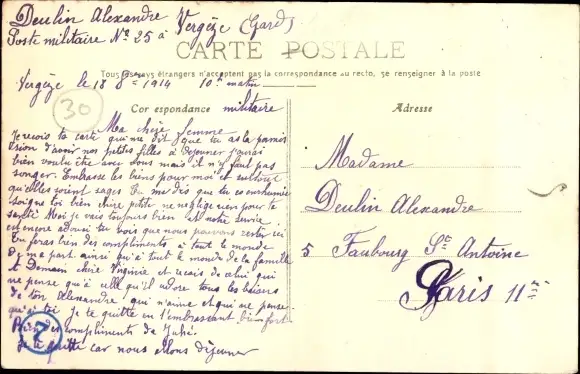 Deulin Alexandre
Poste militaire N° 25 à Vergèze (Gard)
CARTE POSTALE
Tous les pays étrangers n'acceptent pas la correspondance au recto, se renseigner à la poste
Vergèze le 18 8bre 1914 10h matin
30
Correspondance militaire
Ma chère femme
Je reçois ta carte qui me dit que tu as la permis
sion d'avoir nos petites filles à déjeuner j'aurai
bien voulu être avec vous mais il n'y faut pas
songer. Embrasse les biens pour moi et surtout
qu'elles soient sages. Tu me dis que tu es enrhumée
soigne toi bien chère petite ne neglige rien pour ta
santé Moi je vais toujours bien et notre service
est encore adouci tu vois que nous pouvons rester ici
Tu feras bien des compliments à tout le monde
De ma part ainsi qu'à tout le monde de la famille
A demain chère Virginie et reçois de celui qui
ne pense qu'à celle qu'il adore tous les baisers
de ton Alexandre qui t'aime et qui ne pense
qu'à toi je te quitte en t'embrassant bien fort
Bien des compliments de
Je te quitte car nous allons déjeuner
7
Adresse
Madame
Deulin Alexandre
5 Faubourg St Antoine
Paris 11me